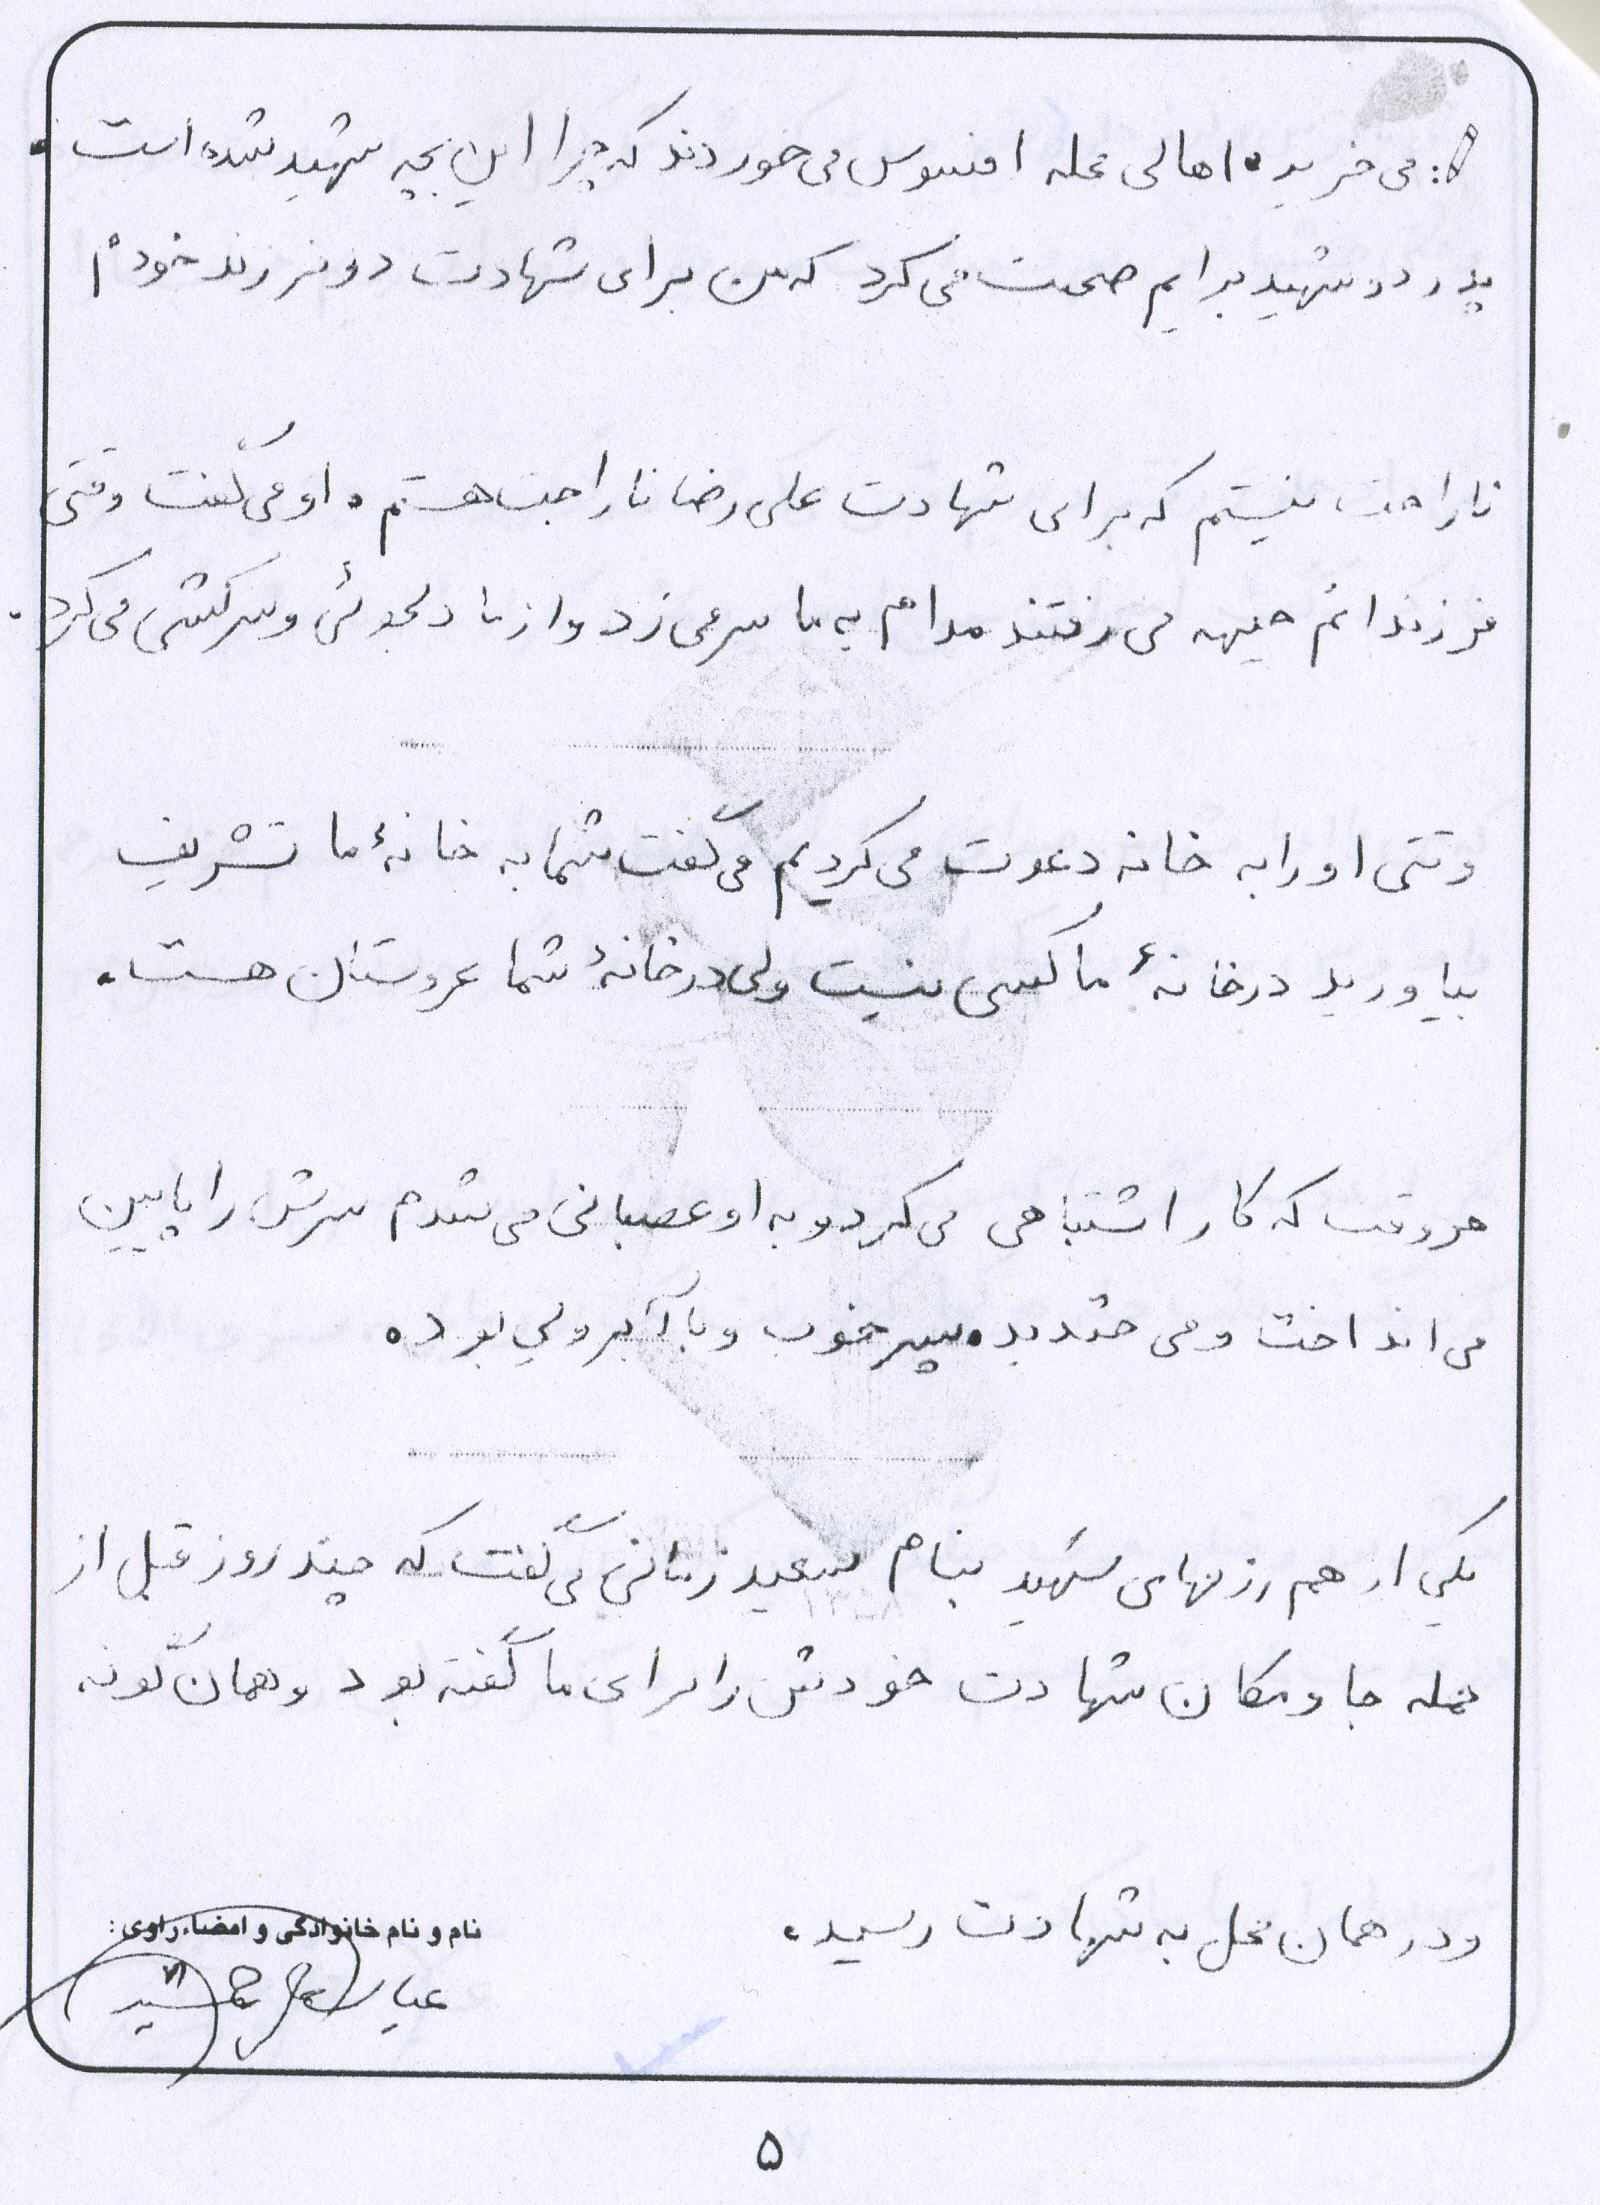 می خرید. اهالی محله افسوس می خوردند که چرا این بچه شهید شده است.
پدر دو شهید برایم صحبت می کرد که من برای شهادت دو فرزند خودم
ناراحت نیستم که برای شهادت علی رضا ناراحت هستم. او می گفت وقتی
فرزندانم جبهه می رفتند مدام به ما سر می زد و از ما دلجوئی و سرکشی می کرد.
وقتی او را به خانه دعوت می کردیم می گفت شما به خانهٔ ما تشریف
بیاورید در خانهٔ ما کسی نیست ولی در خانهٔ شما عروستان هست.
هر وقت که کار اشتباهی می کرد و به او عصبانی می شدم سرش را پایین
می انداخت و می خندید. پسر خوب و با آبرویی بود.
یکی از هم رزمهای شهید بنام سعید زمانی می گفت که چند روز قبل از
حمله جا و مکان شهادت خودش را برای ما گفته بود و همان گونه
و در همان محل به شهادت رسید.
نام و نام خانوادگی و امضاء راوی:
عباس
۵